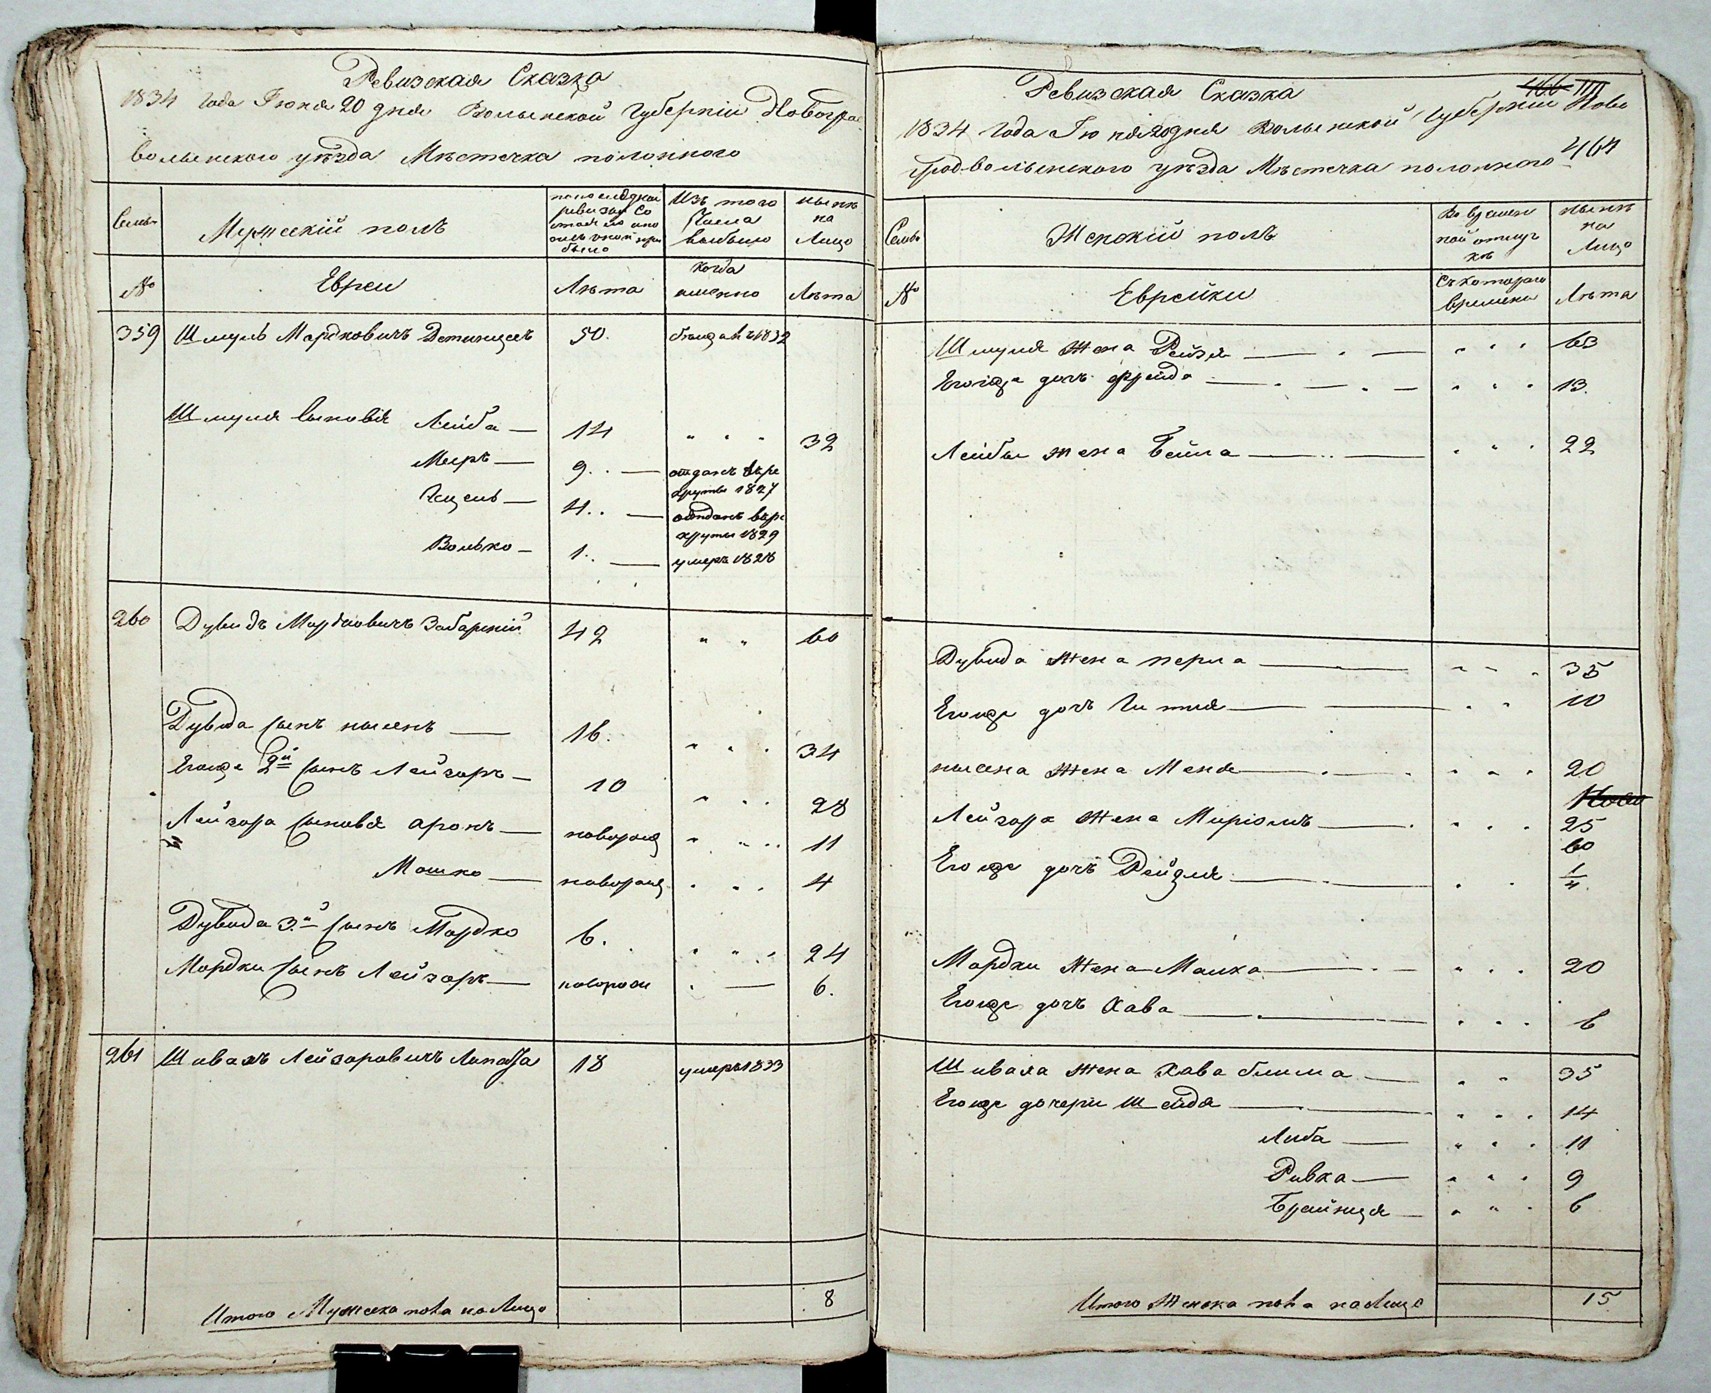 Ревизская Сказка
1834 года Июня 20 дня Волынской Губерніи Новоград
волынского уѣзда Мѣстечка полонного
Семьи
Мужескій полъ
по последней
ревизіи со
стояло и по
слѣ оной при
было
Изъ того
числа
выбыло
нынѣ
на
Лицо
№
Евреи
Лѣта
когда
именно
Лѣта
359 Шмуль Мордковичъ 50. 1832
Шмуля сыновья Лейба 14 " " " 32
Меиръ 9. отданъ въ ре
круты 1827
Ицель 4. отданъ въ ре
круты 1829
Волько 1. умеръ 1828
260 Дувидъ Мордковичъ Забарскій 42 " " 60
Дувида сынъ нысенъ 16. " " " 34
Егоже 2й сынъ Лейзоръ 10 " " " 28
Лейзора сыновья аронъ новорож " " " 11
Мошко новорож " " " 4
Дувида 3й сынъ Мордко 6. " " " 24
Мордки сынъ Лейзоръ новорож " 6.
261 Шивахъ Лейзоровичъ Лопата 18 умеръ 1833
Итого Мужеска пола на Лицо 8
Ревизская Сказка
1834 года Июня 20 дня Волынской Губерніи Ново
градволынского уѣзда Мѣстечка полонного
464
Семьи
Женскій полъ
Во времен
ной отлуч
кѣ
нынѣ
на
Лицо
№
Еврейки
Съ котораго
времени
Лѣта
Шмуля жена Рейзя " " " 63
Егоже дочь фрейда " " " 13.
Лейбы жена Бейла " " " 22
Дувида жена перла " " " 35
Егоже дочь Гитля " " 10
нысена жена Меня " " " 20
Лейзора жена Миріомъ " " " 25
60
Егоже дочь Рейзля " " 1/4.
Мордки жена Малка " " " 20
Егоже дочь Хава " " " 6
Шиваха жена Хава блима " " 35
Егоже дочери Шейдя " " " 14
Либа " " " 11
Ривка " " " 9
Брайнця " " " 6
Итого Женска пола на Лицо 15